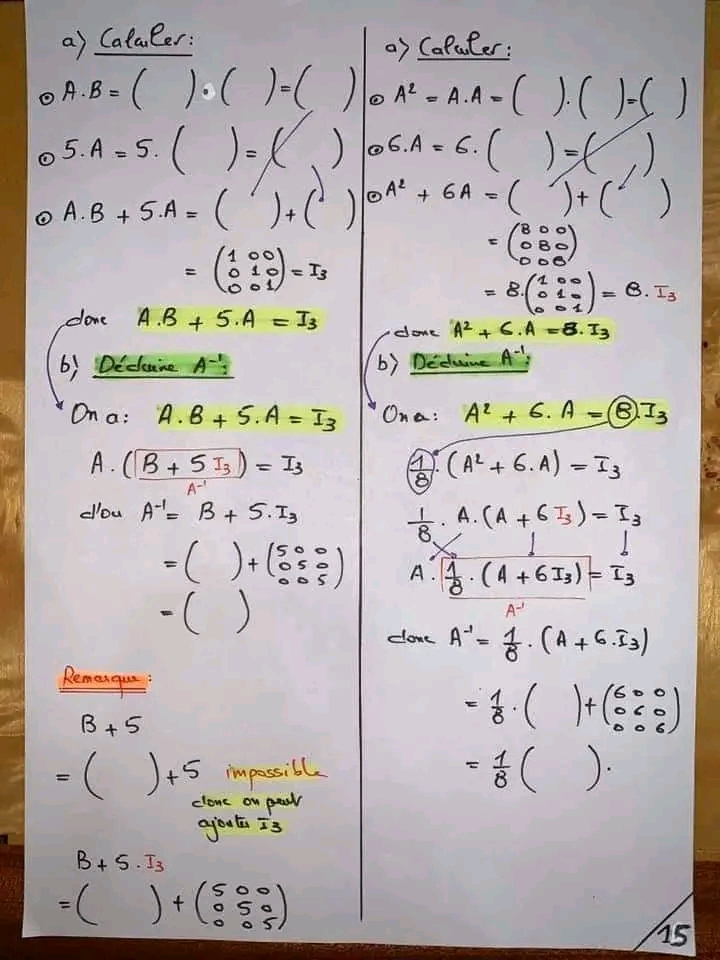 a) Calculer:
⊙ A.B = ( ) . ( ) = ( )
⊙ 5.A = 5. ( ) = ( )
⊙ A.B + 5.A = ( ) + ( )
= (1 0 0
0 1 0
0 0 1) = I₃
donc A.B + 5.A = I₃
b) Déduire A⁻¹:
On a: A.B + 5.A = I₃
A.(B + 5 I₃) = I₃
A⁻¹
d'ou A⁻¹ = B + 5.I₃
= ( ) + (5 0 0
0 5 0
0 0 5)
= ( )
Remarque:
B + 5
= ( ) + 5 impossible
donc on peut
ajouter I₃
B + 5.I₃
= ( ) + (5 0 0
0 5 0
0 0 5)
a) Calculer:
⊙ A² = A.A = ( ) . ( ) = ( )
⊙ 6.A = 6. ( ) = ( )
⊙ A² + 6A = ( ) + ( )
= (8 0 0
0 8 0
0 0 8)
= 8.(1 0 0
0 1 0
0 0 1) = 8. I₃
donc A² + 6.A = 8.I₃
b) Déduire A⁻¹:
On a: A² + 6.A = 8.I₃
1/8 . (A² + 6.A) = I₃
1/8 . A.(A + 6 I₃) = I₃
A. 1/8 . (A + 6I₃) = I₃
A⁻¹
donc A⁻¹ = 1/8 . (A + 6.I₃)
= 1/8 . ( ) + (6 0 0
0 6 0
0 0 6)
= 1/8 ( ).
15